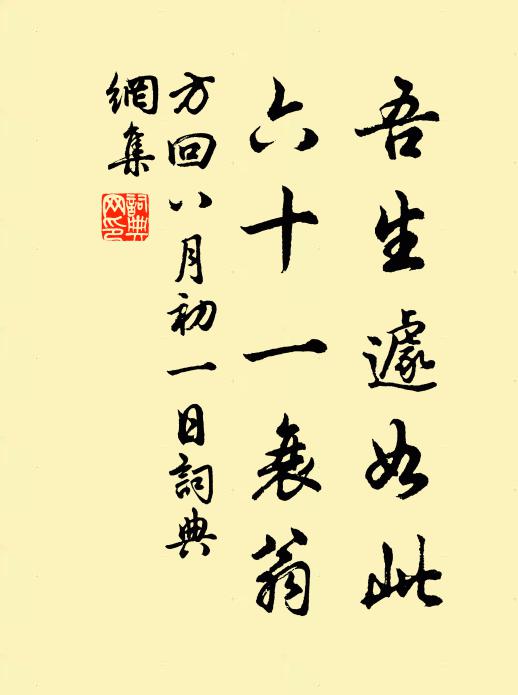 吾生遽如此
六十一衰翁
方回八月初一日詞典
網集
詞典
网印